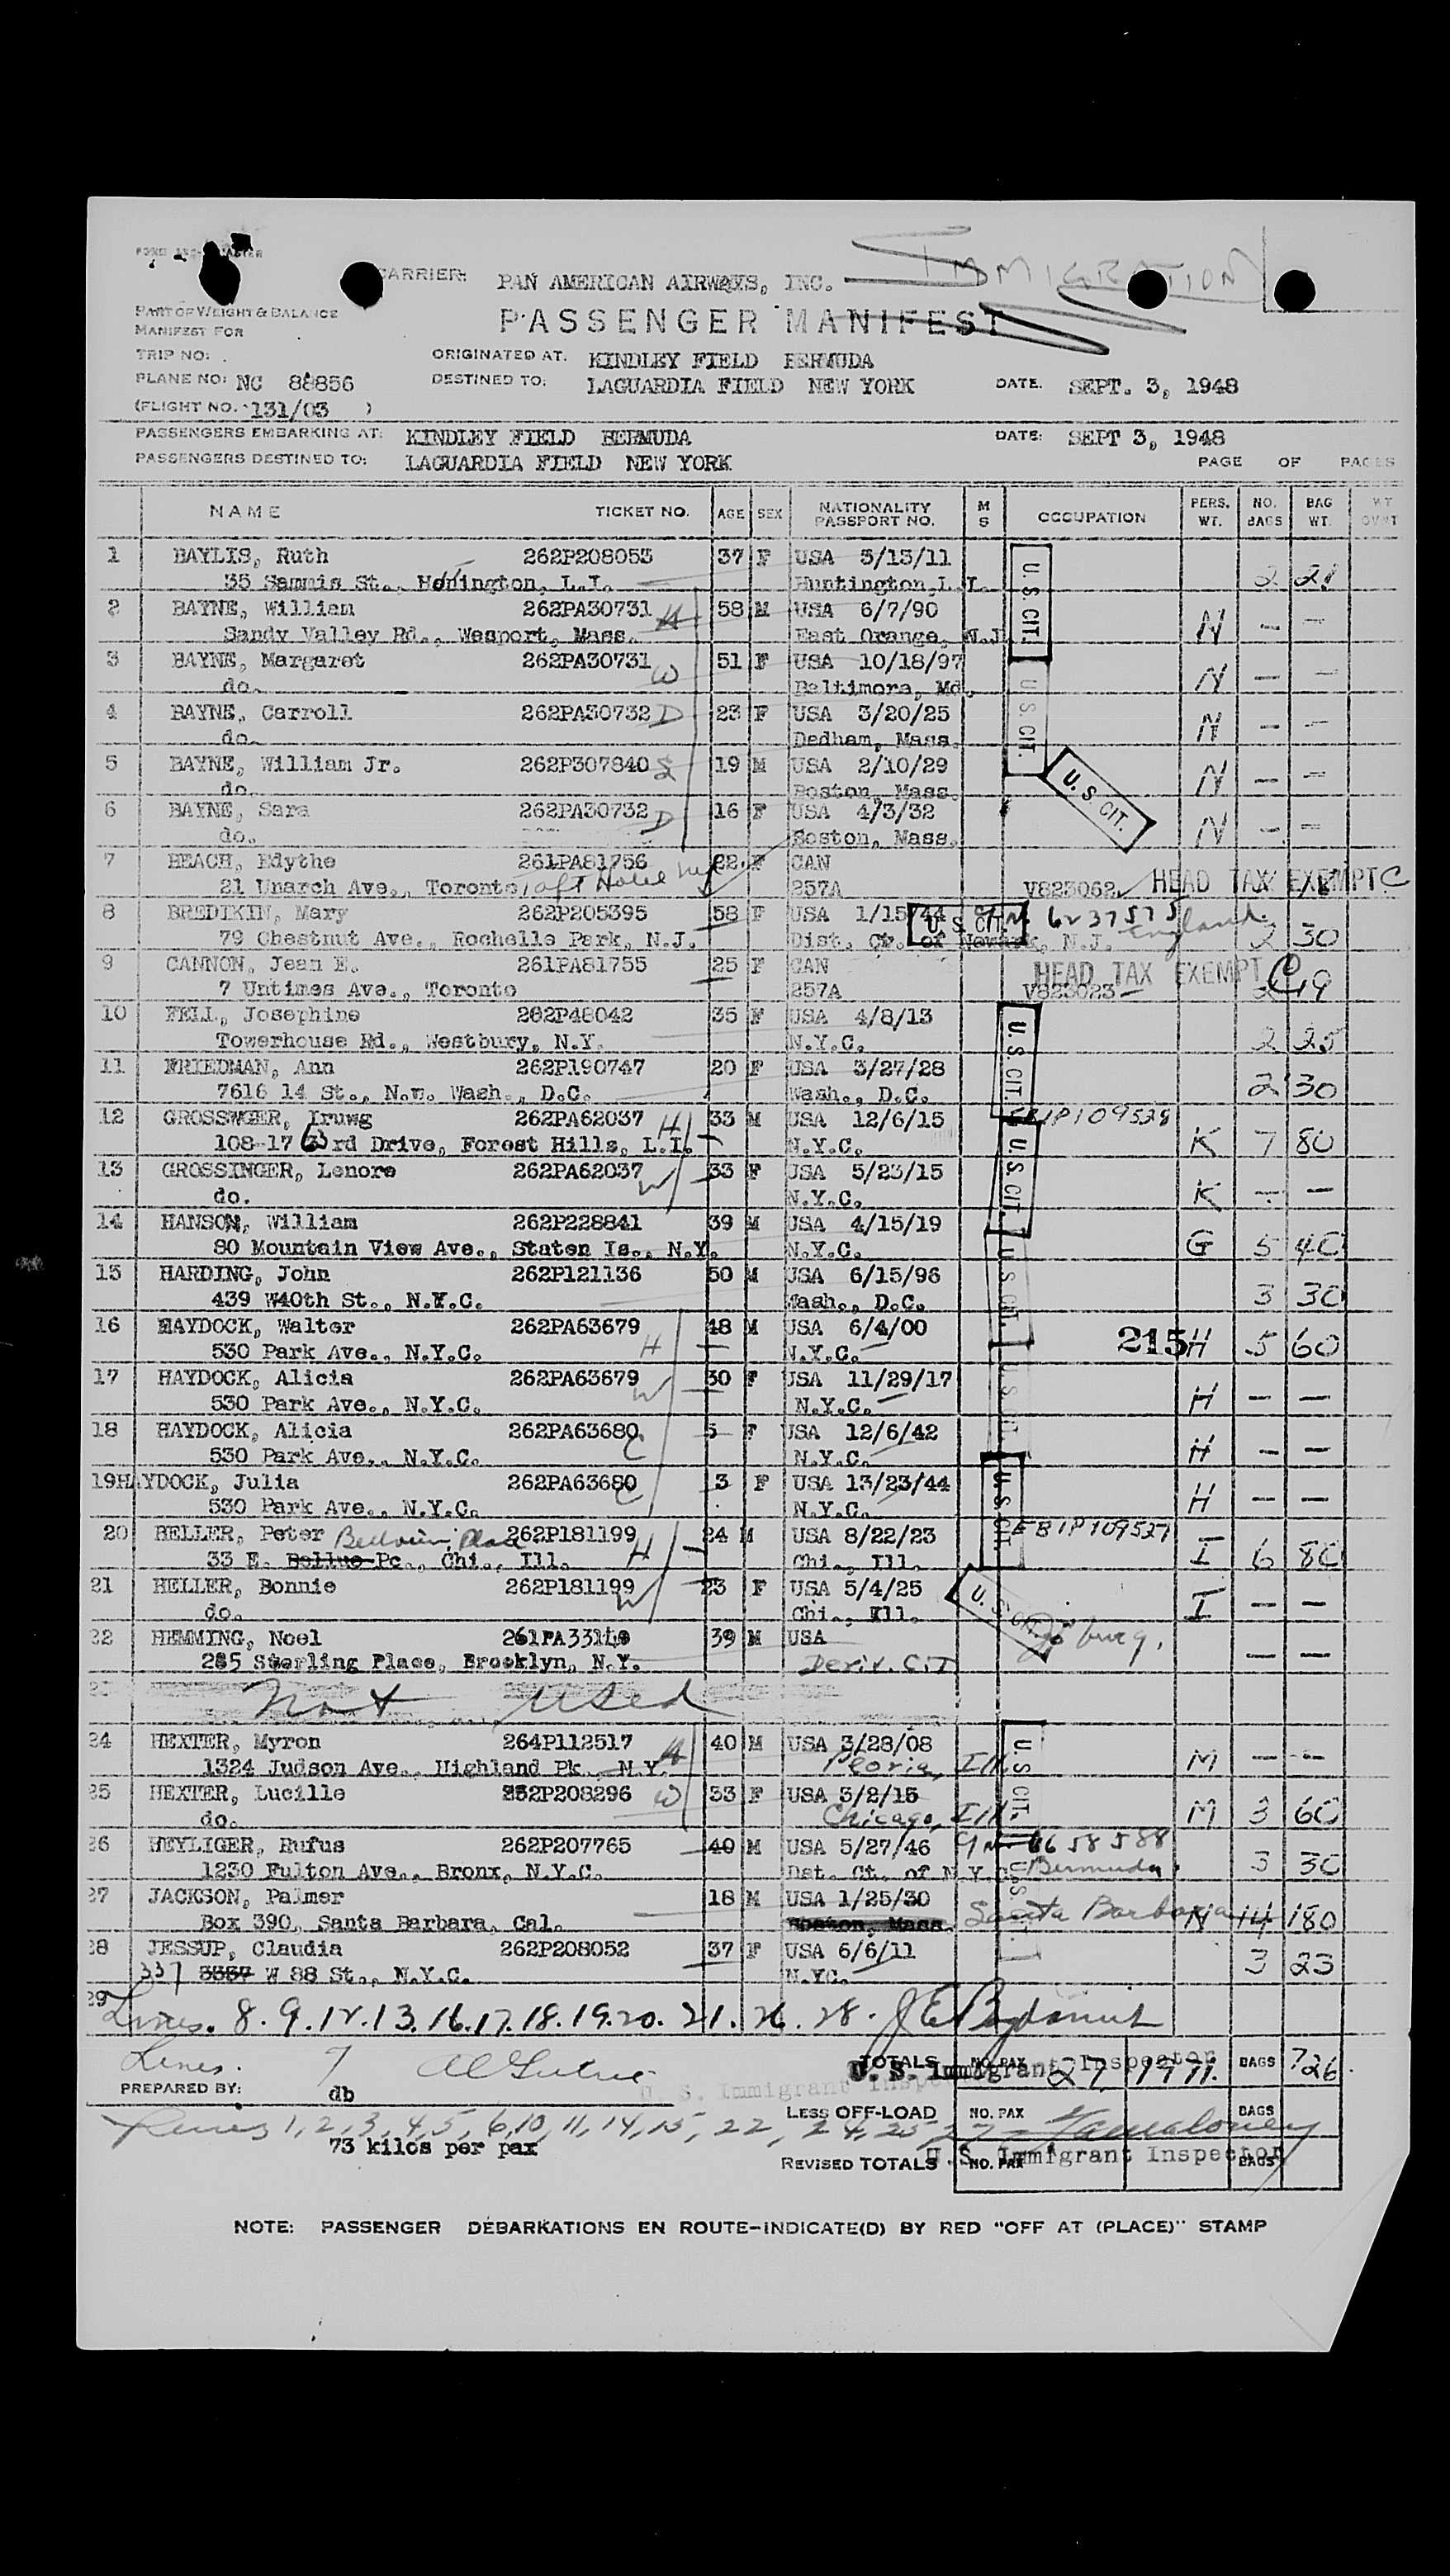 CARRIER: PAN AMERICAN AIRWAYS, INC. IMMIGRATION
PART OF WEIGHT & BALANCE
MANIFEST FOR
PASSENGER MANIFEST
TRIP NO: ORIGINATED AT. KINDLEY FIELD BERMUDA
PLANE NO: NC 88856 DESTINED TO: LAGUARDIA FIELD NEW YORK DATE. SEPT. 3, 1948
(FLIGHT NO. 131/03 )
PASSENGERS EMBARKING AT: KINDLEY FIELD BERMUDA DATE: SEPT 3, 1948
PASSENGERS DESTINED TO: LAGUARDIA FIELD NEW YORK PAGE OF PAGES
NAME TICKET NO. AGE SEX NATIONALITY PASSPORT NO. M S OCCUPATION PERS. WT. NO. BAGS BAG WT. WT
1 BAYLIS, Ruth 262P208053 37 F USA 5/13/11 U.S. CIT.
35 Sammis St., L.I. Huntington, L.I. 2 21
2 BAYNE, William 262PA30731 H 58 M USA 6/7/90
Sandy Valley Rd., Wesport, Mass. East Orange, N.J. N - -
3 BAYNE, Margaret 262PA30731 W 51 F USA 10/18/97
do. Baltimore, Md. U.S. CIT. N - -
4 BAYNE, Carroll 262PA30732 D 23 F USA 3/20/25
do. Dedham, Mass. N - -
5 BAYNE, William Jr. 262P307840 S 19 M USA 2/10/29
do. Boston, Mass. U.S. CIT. N - -
6 BAYNE, Sara 262PA30732 D 16 F USA 4/3/32
do. Boston, Mass. N - -
7 BEACH, Edythe 261PA81756 22 F CAN
21 Unarch Ave., Toronto 257A V823062 HEAD TAX EXEMPT C
8 BREDIKIN, Mary 262P205395 58 F USA 1/15/44 CN 6237575 England
79 Chestnut Ave., Rochelle Park, N.J. Dist. Ct. of Newark, N.J. U.S. CIT. 2 30
9 CANNON, Jean E. 261PA81755 25 F CAN HEAD TAX EXEMPT C
7 Untimes Ave., Toronto 257A V823023 2 19
10 FELL, Josephine 262P48042 35 F USA 4/8/13 U.S. CIT.
Towerhouse Rd., Westbury, N.Y. N.Y.C. 2 25
11 FRIEDMAN, Ann 262P190747 20 F USA 3/27/28
7616 14 St., N.W. Wash., D.C. Wash., D.C. 2 30
12 GROSSWGER, Iruwg 262PA62037 H 33 M USA 12/6/15 P109528
108-17 63rd Drive, Forest Hills, L.I. N.Y.C. U.S. CIT. K 7 80
13 GROSSINGER, Lenore 262PA62037 W 33 F USA 5/23/15
do. N.Y.C. K - -
14 HANSON, William 262P228841 39 M USA 4/15/19
80 Mountain View Ave., Staten Is., N.Y. N.Y.C. U.S. CIT. G 5 40
15 HARDING, John 262P121136 50 M USA 6/15/96
439 W40th St., N.Y.C. Wash., D.C. 3 30
16 HAYDOCK, Walter 262PA63679 48 M USA 6/4/00 215
530 Park Ave., N.Y.C. H N.Y.C. H 5 60
17 HAYDOCK, Alicia 262PA63679 30 F USA 11/29/17
530 Park Ave., N.Y.C. W N.Y.C. U.S. CIT. H - -
18 HAYDOCK, Alicia 262PA63680 5 F USA 12/6/42
530 Park Ave., N.Y.C. C N.Y.C. H - -
19 HAYDOCK, Julia 262PA63680 3 F USA 13/23/44
530 Park Ave., N.Y.C. C N.Y.C. U.S. CIT. H - -
20 HELLER, Peter 262P181199 24 M USA 8/22/23 EB1P109527
33 E. Bellue Pc., Chi., Ill. H Chi., Ill. I 6 80
21 HELLER, Bonnie 262P181199 23 F USA 5/4/25
do. W Chi., Ill. U.S. CIT. I - -
22 HEMMING, Noel 39 M USA
285 Sterling Place, Brooklyn, N.Y. Deriv. CIT - -
Not used
24 HEXTER, Myron 264P112517 40 M USA 3/28/08
1324 Judson Ave., Highland Pk., N.Y. H Peoria, Ill. U.S. CIT. M - -
25 HEXTER, Lucille 262P208296 W 33 F USA 3/2/15
do. Chicago, Ill. M 3 60
26 HEYLIGER, Rufus 262P207765 40 M USA 5/27/46 CN 6658588
1230 Fulton Ave., Bronx, N.Y.C. Dst. Ct. of N.Y.C. Bermuda 3 30
27 JACKSON, Palmer 18 M USA 1/25/30
Box 390, Santa Barbara, Cal. Boston, Mass. Santa Barbara N 14 180
28 JESSUP, Claudia 262P208052 37 F USA 6/6/11
337 3337 W 88 St., N.Y.C. N.YC. 3 23
29 Lines. 8. 9. 12. 13. 16. 17. 18. 19. 20. 21. 26. 28.
Lines. 7 TOTALS NO. PAX 27 1971. BAGS 726
U.S. Immigrant Inspector
PREPARED BY: db
U. S. Immigrant Inspector
LESS OFF-LOAD NO. PAX BAGS
Lines 1, 2, 3, 4, 5, 6, 10, 11, 14, 15, 22, 24, 25, 27
73 kilos per pax
REVISED TOTALS NO. PAX BAGS
U.S. Immigrant Inspector
NOTE: PASSENGER DEBARKATIONS EN ROUTE-INDICATE(D) BY RED "OFF AT (PLACE)" STAMP